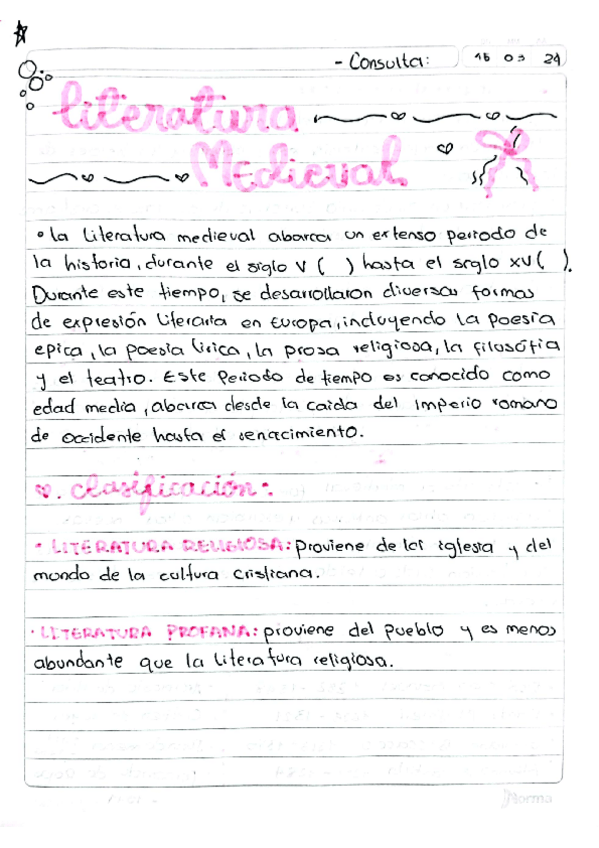 - Consulta: 15 03 24
Literatura
Medieval
• la Literatura medieval abarca un extenso periodo de
la historia, durante el siglo V ( ) hasta el siglo XV ( ).
Durante este tiempo, se desarrollaron diversas formas
de expresión literaria en Europa, incluyendo la poesía
epica, la poesía lirica, la prosa religiosa, la filosofía
y el teatro. Este Periodo de tiempo es conocido como
edad media, abarca desde la caida del imperio romano
de occidente hasta el renacimiento.
♥. clasificación:
• LITERATURA RELIGIOSA: proviene de la iglesia y del
mundo de la cultura cristiana.
• LITERATURA PROFANA: proviene del pueblo y es menos
abundante que la literatura religiosa.
Norma